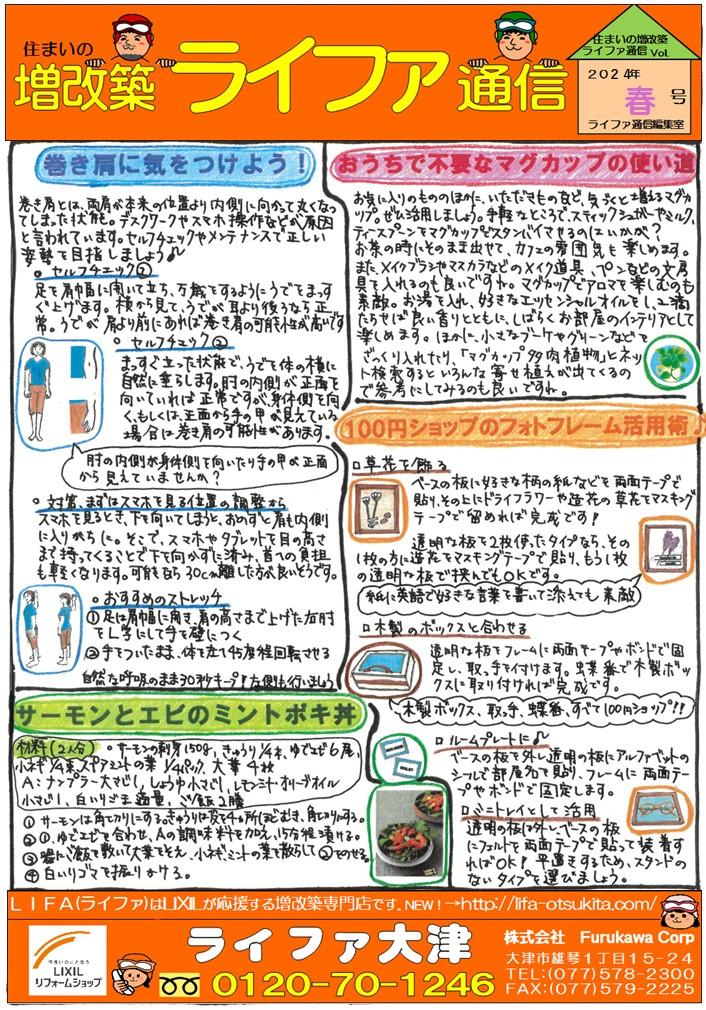 住まいの
増改築 ライファ通信
住まいの増改築
ライファ通信 Vol.
2024年
春号
ライファ通信編集室
巻き肩に気をつけよう！
巻き肩とは、両肩が本来の位置より内側に向かって丸くなっ
てしまった状態。デスクワークやスマホ操作などが原因
と言われています。セルフチェックやメンテナンスで正しい
姿勢を目指しましょう♪
○セルフチェック①
足を肩幅に開いて立ち、万歳をするようにうでをまっす
ぐ上げます。横から見て、うでが耳より後ろなら正
常。うでが肩より前にあれば巻き肩の可能性が高いです
○セルフチェック②
まっすぐ立った状態で、うでを体の横に
自然に垂らします。肘の内側が正面を
向いていれば正常ですが、身体側を向
く、もしくは、正面から手の甲が見えている
場合は巻き肩の可能性があります。
肘の内側が身体側を向いたり手の甲が正面
から見えていませんか？
○対策、まずはスマホを見る位置の調整から
スマホを見るとき、下を向いてしまうと、おのずと肩も内側
に入りがちに。そこで、スマホやタブレットを目の高さ
まで持ってくることで下を向かずに済み、首への負担
も軽くなります。可能なら30cm離した方が良いそうです。
○おすすめのストレッチ
①足は肩幅に開き、肩の高さまで上げた右肘
をL字にして手を壁につく
②手をついたまま、体を左へ45度程回転させる
自然な呼吸のまま30秒キープ！左側も行いましょう
サーモンとエビのミントポキ丼
材料(2人分) ○サーモンの刺身150g、きゅうり1/4本、ゆでエビ6尾、
小ネギ1/4束、スペアミントの葉1/4パック、大葉4枚
A:ナンプラー大さじ1、しょうゆ小さじ1、レモンミント・オリーブオイル
小さじ1、白いりごま適量、ご飯2膳
①サーモンは角切りにする。きゅうりは皮を4ヵ所ほどむき、角切りにする。
②①、ゆでエビを合わせ、Aの調味料を加え、15分程漬ける。
③器にご飯を敷いて大葉をそえ、小ネギ、ミントの葉を散らして②をのせる。
④白いりゴマを振りかける。
おうちで不要なマグカップの使い道
お気に入りのもののほかに、いただきものなど、気づくと増えるマグカ
ップ。ぜひ活用しましょう。手軽なところで、スティックシュガーやミルク、
ティースプーンをマグカップにスタンバイさせるのはいかが？
お茶の時にそのまま出せて、カフェの雰囲気も楽しめます。
また、メイクブラシやマスカラなどのメイク道具、ペンなどの文房
具を入れるのも良いですね。マグカップでアロマを楽しむのも
素敵。お湯を入れ、好きなエッセンシャルオイルを1、2滴
たらせば良い香りとともに、しばらくお部屋のインテリアとして
楽しめます。ほかに、小さなブーケやグリーンなどを
ざっくり入れたり、「マグカップ 多肉植物」とネッ
ト検索するといろんな寄せ植えが出てくるの
で参考にしてみるのも良いですね。
100円ショップのフォトフレーム活用術♪
□草花を飾る
ベースの板に好きな柄の紙などを両面テープで
貼り、その上にドライフラワーや造花の草花をマスキング
テープで留めれば完成です！
透明な板を2枚使ったタイプなら、その
1枚の方に造花をマスキングテープで貼り、もう1枚
の透明な板で挟んでもOKです。
紙に英語で好きな言葉を書いて添えても素敵
□木製のボックスと合わせる
透明な板をフレームに両面テープやボンドで固
定し、取っ手を付けます。蝶番で木製ボッ
クスに取り付ければ完成です。
木製ボックス、取っ手、蝶番、すべて100円ショップ!!
□ルームプレートに♪
ベースの板を外し透明の板にアルファベットの
シールで部屋名を貼り、フレームに両面テー
プやボンドで固定します。
□ミニトレイとして活用
透明の板は外し、ベースの板
にフェルトを両面テープで貼って装着す
ればOK！平置きするため、スタンドの
ないタイプを選びましょう。
LIFA(ライファ)はLIXILが応援する増改築専門店です。NEW！→http://lifa-otsukita.com/
LIXIL
リフォームショップ
ライファ大津
0120-70-1246
株式会社 Furukawa Corp
大津市雄琴1丁目15-24
TEL:(077)578-2300
FAX:(077)579-2225